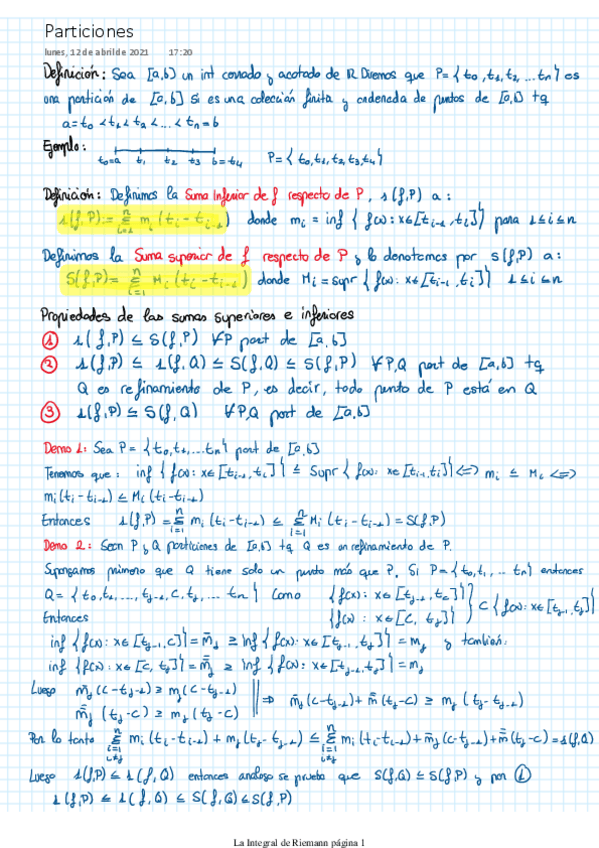 Particiones
lunes, 12 de abril de 2021 17:20
Definición: Sea [a,b] un int cerrado y acotado de ℝ Diremos que P={t₀,t₁,t₂,...tₙ} es
una partición de [a,b] si es una colección finita y ordenada de puntos de [a,b] tq
a=t₀<t₁<t₂<...<tₙ=b
Ejemplo: t₀=a t₁ t₂ t₃ b=t₄ P={t₀,t₁,t₂,t₃,t₄}
Definición: Definimos la Suma Inferior de f respecto de P, s(f,P) a:
s(f,P):= Σᵢ₌₁ⁿ mᵢ(tᵢ-tᵢ₋₁) donde mᵢ = inf{f(x): x∈[tᵢ₋₁,tᵢ]} para 1≤i≤n
Definimos la Suma superior de f respecto de P y lo denotamos por S(f,P) a:
S(f,P)= Σᵢ₌₁ⁿ Mᵢ(tᵢ-tᵢ₋₁) donde Mᵢ=supr{f(x): x∈[tᵢ₋₁,tᵢ]} 1≤i≤n
Propiedades de las sumas superiores e inferiores
① s(f,P) ≤ S(f,P) ∀P part de [a,b]
② s(f,P) ≤ s(f,Q) ≤ S(f,Q) ≤ S(f,P) ∀P,Q part de [a,b] tq
Q es refinamiento de P, es decir, todo punto de P está en Q
③ s(f,P) ≤ S(f,Q) ∀P,Q part de [a,b]
Demo 1: Sea P={t₀,t₁,...tₙ} part de [a,b]
Tenemos que: inf{f(x): x∈[tᵢ₋₁,tᵢ]} ≤ Supr{f(x): x∈[tᵢ₋₁,tᵢ]} <=> mᵢ ≤ Mᵢ <=>
mᵢ(tᵢ-tᵢ₋₁) ≤ Mᵢ(tᵢ-tᵢ₋₁)
Entonces s(f,P)= Σᵢ₌₁ⁿ mᵢ(tᵢ-tᵢ₋₁) ≤ Σᵢ₌₁ⁿ Mᵢ(tᵢ-tᵢ₋₁)=S(f,P)
Demo 2: Sean P y Q particiones de [a,b] tq Q es un refinamiento de P.
Supongamos primero que Q tiene solo un punto más que P. Si P={t₀,t₁,..tₙ} entonces
Q={t₀,t₁,...,tⱼ₋₁,c,tⱼ,...tₙ} Como {f(x): x∈[tⱼ₋₁,c]}
{f(x): x∈[c,tⱼ]} } ⊂ {f(x): x∈[tⱼ₋₁,tⱼ]}
Entonces
inf{f(x): x∈[tⱼ₋₁,c]}=m̄ⱼ ≥ inf{f(x): x∈[tⱼ₋₁,tⱼ]}=mⱼ y también:
inf{f(x): x∈[c,tⱼ]}=m̿ⱼ ≥ inf{f(x): x∈[tⱼ₋₁,tⱼ]}=mⱼ
Luego m̄ⱼ(c-tⱼ₋₁) ≥ mⱼ(c-tⱼ₋₁)
m̿ⱼ(tⱼ-c) ≥ mⱼ(tⱼ-c) || ⇒ m̄ⱼ(c-tⱼ₋₁)+m̿(tⱼ-c) ≥ mⱼ(tⱼ-tⱼ₋₁)
Por lo tanto Σᵢ₌₁,ᵢ≠ⱼⁿ mᵢ(tᵢ-tᵢ₋₁)+mⱼ(tⱼ-tⱼ₋₁) ≤ Σᵢ₌₁,ᵢ≠ⱼⁿ mᵢ(tᵢ-tᵢ₋₁)+m̄ⱼ(c-tⱼ₋₁)+m̿(tⱼ-c)=s(f,Q)
Luego s(f,P) ≤ s(f,Q) entonces análogo se prueba que S(f,Q) ≤ S(f,P) y por ①
s(f,P) ≤ s(f,Q) ≤ S(f,Q) ≤ S(f,P)
La Integral de Riemann página 1